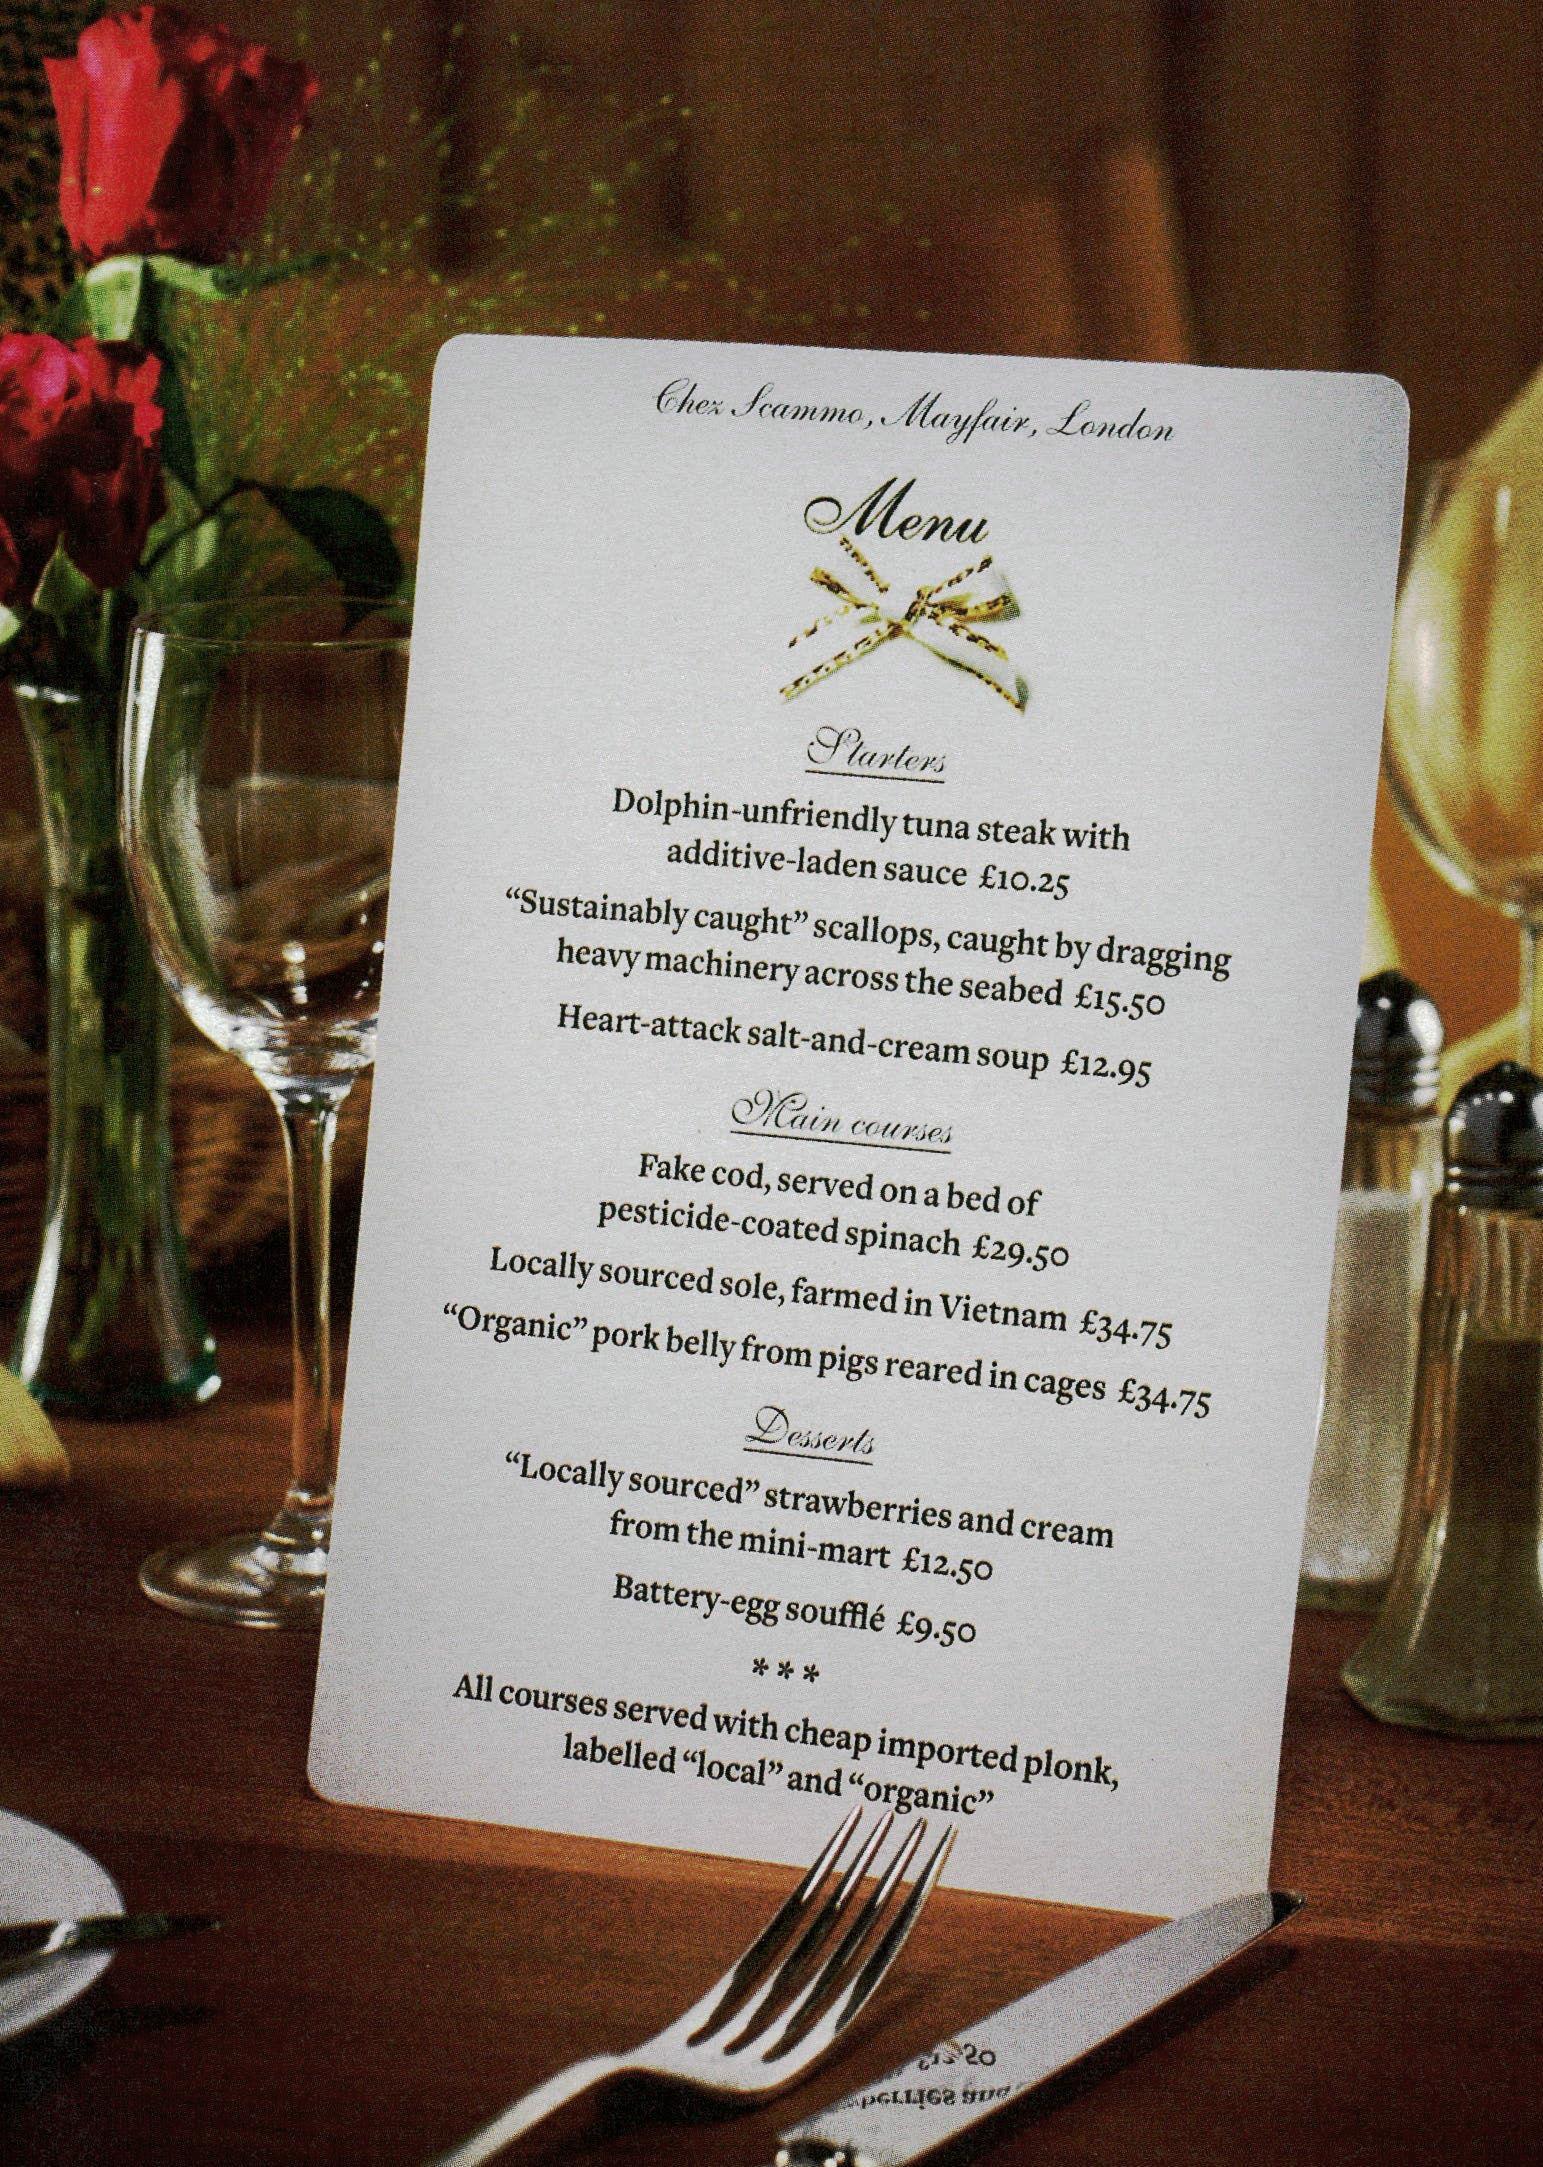 Chez Scammo, Mayfair, London
Menu
Starters
Dolphin-unfriendly tuna steak with
additive-laden sauce £10.25
“Sustainably caught” scallops, caught by dragging
heavy machinery across the seabed £15.50
Heart-attack salt-and-cream soup £12.95
Main courses
Fake cod, served on a bed of
pesticide-coated spinach £29.50
Locally sourced sole, farmed in Vietnam £34.75
“Organic” pork belly from pigs reared in cages £34.75
Desserts
“Locally sourced” strawberries and cream
from the mini-mart £12.50
Battery-egg soufflé £9.50
***
All courses served with cheap imported plonk,
labelled “local” and “organic”
£12.50